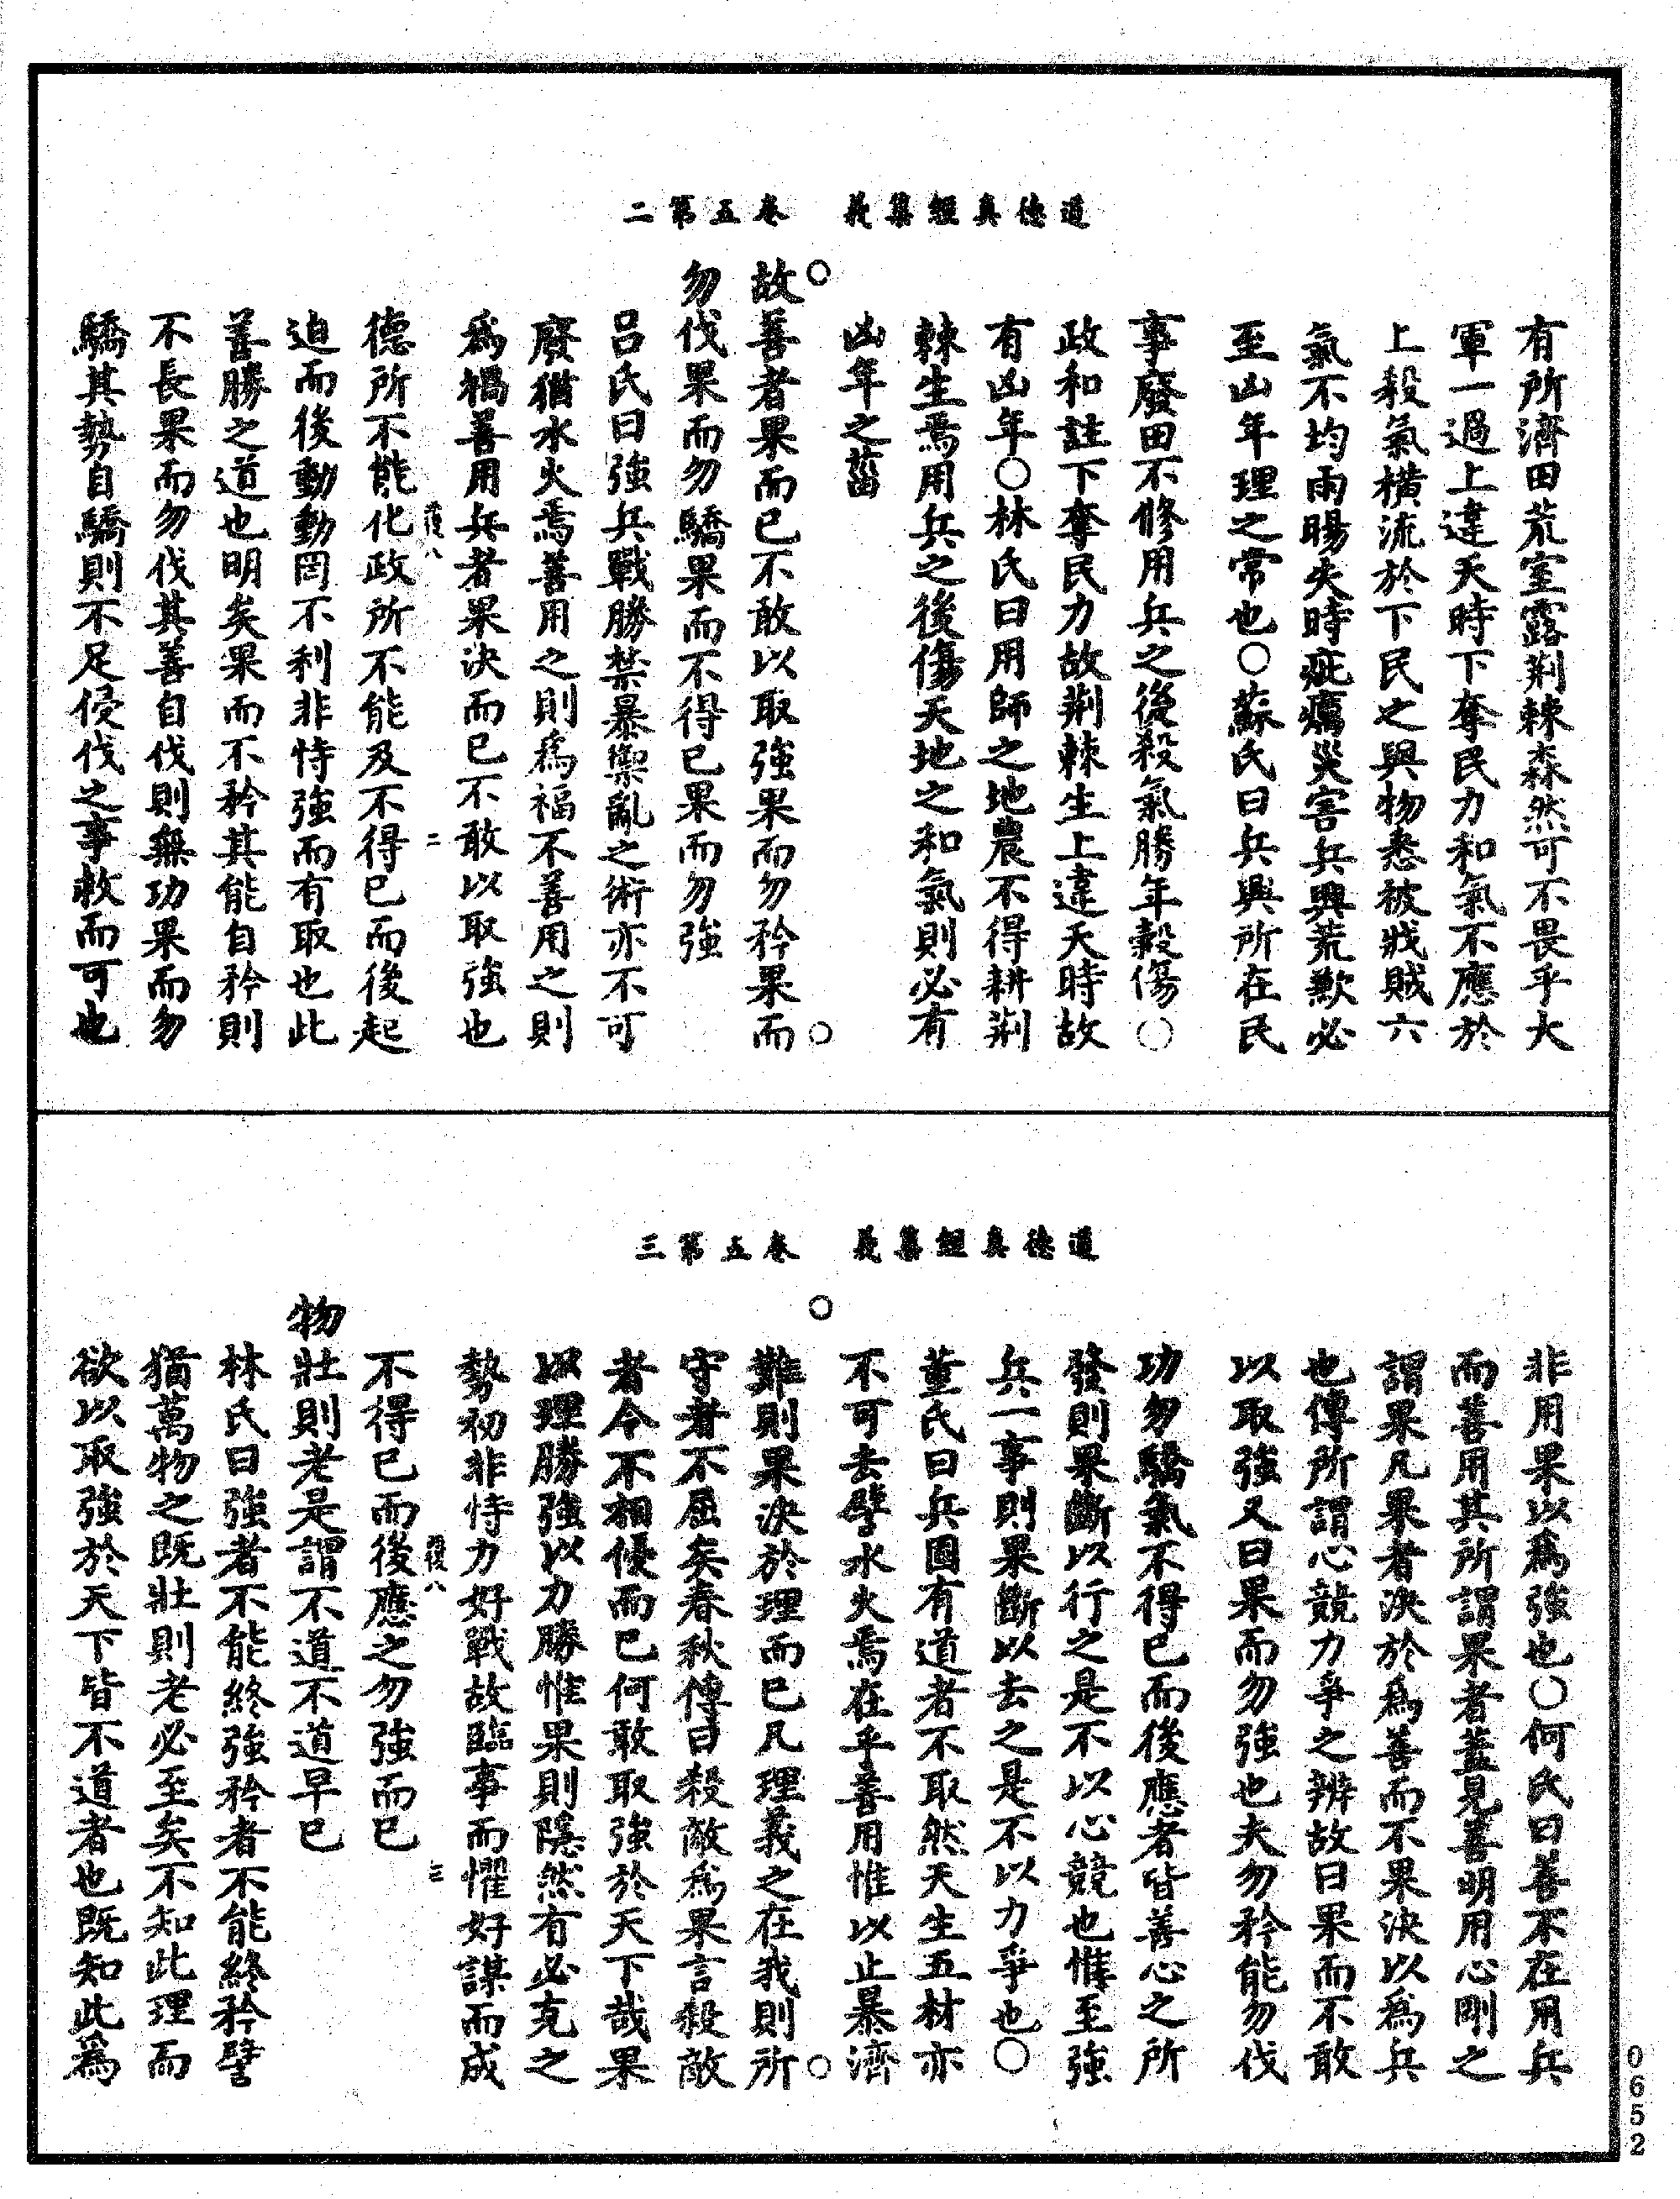 道德真經集義　卷五第二
有所濟田荒室露荆棘森然可不畏乎大
軍一過上違天時下奪民力和氣不應於
上殺氣橫流於下民之與物悉被戕賊六
氣不均雨暘失時疵癘災害兵興荒歉必
至凶年理之常也○蘇氏曰兵興所在民
事廢田不修用兵之後殺氣勝年穀傷○
政和註下奪民力故荆棘生上違天時故
有凶年○林氏曰用師之地農不得耕荆
棘生焉用兵之後傷天地之和氣則必有
凶年之菑
○○
故善者果而已不敢以取強果而勿矜果而
勿伐果而勿驕果而不得已果而勿強
吕氏曰強兵戰勝禁暴禦亂之術亦不可
廢猶水火焉善用之則爲福不善用之則
爲禍善用兵者果決而已不敢以取強也
八　二
德所不能化政所不能及不得已而後起
迫而後動動罔不利非恃強而有取也此
善勝之道也明矣果而不矜其能自矜則
不長果而勿伐其善自伐則無功果而勿
驕其勢自驕則不足侵伐之事救而可也
道德真經集義　卷五第三
非用果以爲強也○何氏曰善不在用兵
而善用其所謂果者蓋見善明用心剛之
謂果凡果者決於爲善而不果決以爲兵
也傳所謂心競力爭之辨故曰果而不敢
以取強又曰果而勿強也夫勿矜能勿伐
功勿驕氣不得已而後應者皆善心之所
發則果斷以行之是不以心競也惟至強
兵一事則果斷以去之是不以力爭也○
董氏曰兵固有道者不取然天生五材亦
不可去譬水火焉在乎善用惟以止暴濟
○○
難則果決於理而已凡理義之在我則所
守者不屈矣春秋傳曰殺敵爲果言殺敵
者令不相侵而已何敢取強於天下哉果
以理勝強以力勝惟果則隱然有必克之
勢初非恃力好戰故臨事而懼好謀而成
八　三
不得已而後應之勿強而已
物壯則老是謂不道不道早已
林氏曰強者不能終強矜者不能終矜譬
猶萬物之既壯則老必至矣不知此理而
欲以取強於天下皆不道者也既知此爲
0652